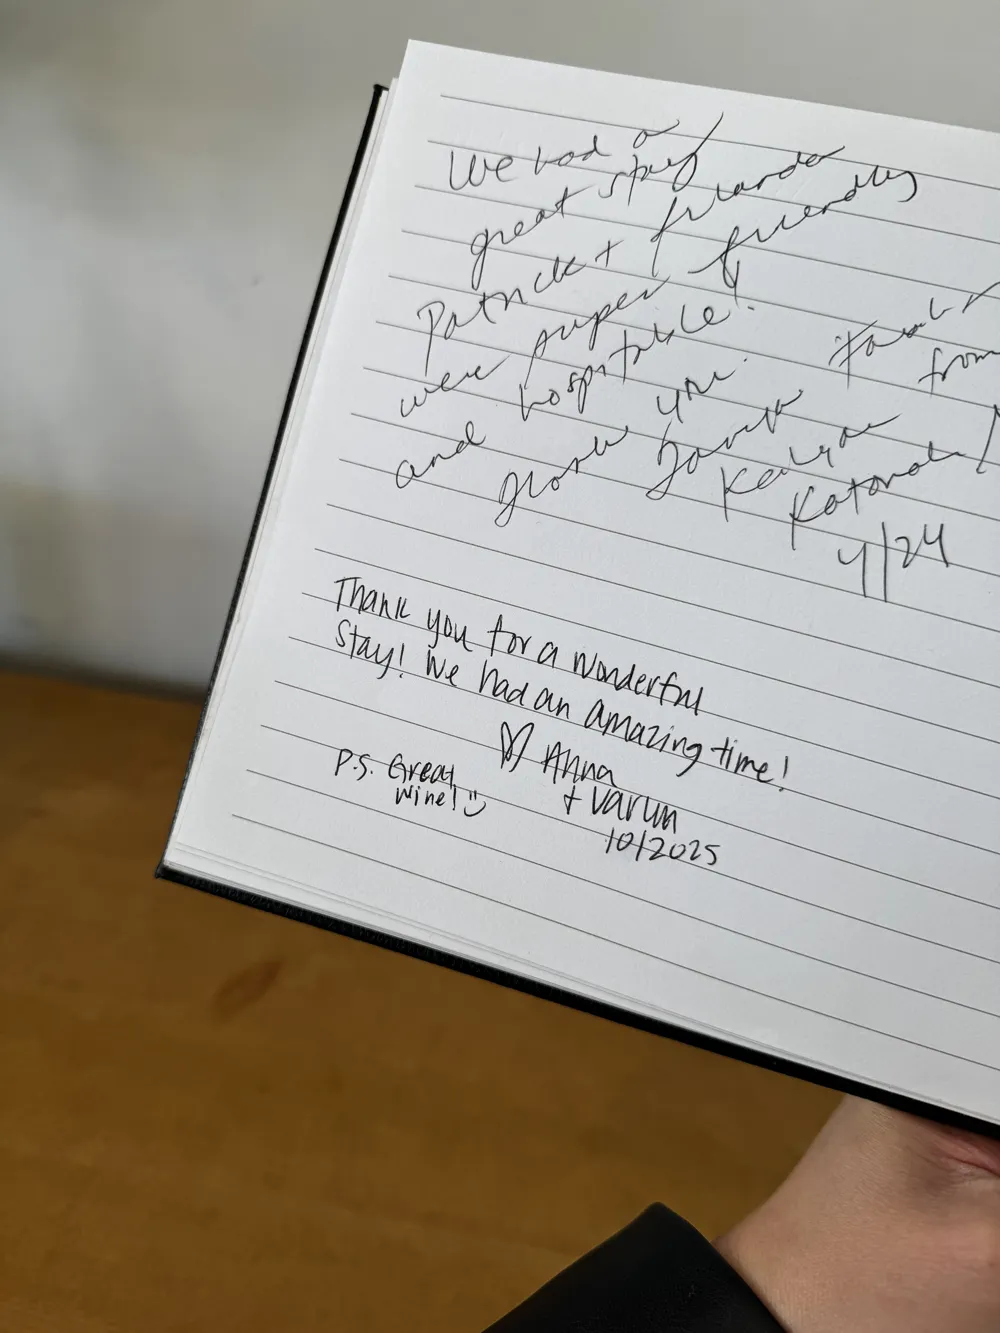 We had a
great stay
Patrick +
were super friendly
and hospitable!
you
from
Katonah!
4/24
Thank you for a wonderful
Stay! We had an amazing time!
♡ Anna
+ Varun
10/2025
P.S. Great
Wine! :)